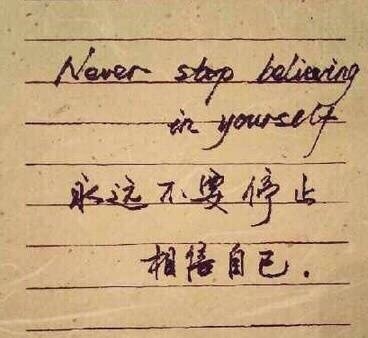 Never stop believing
in yourself
永远不要停止
相信自已.